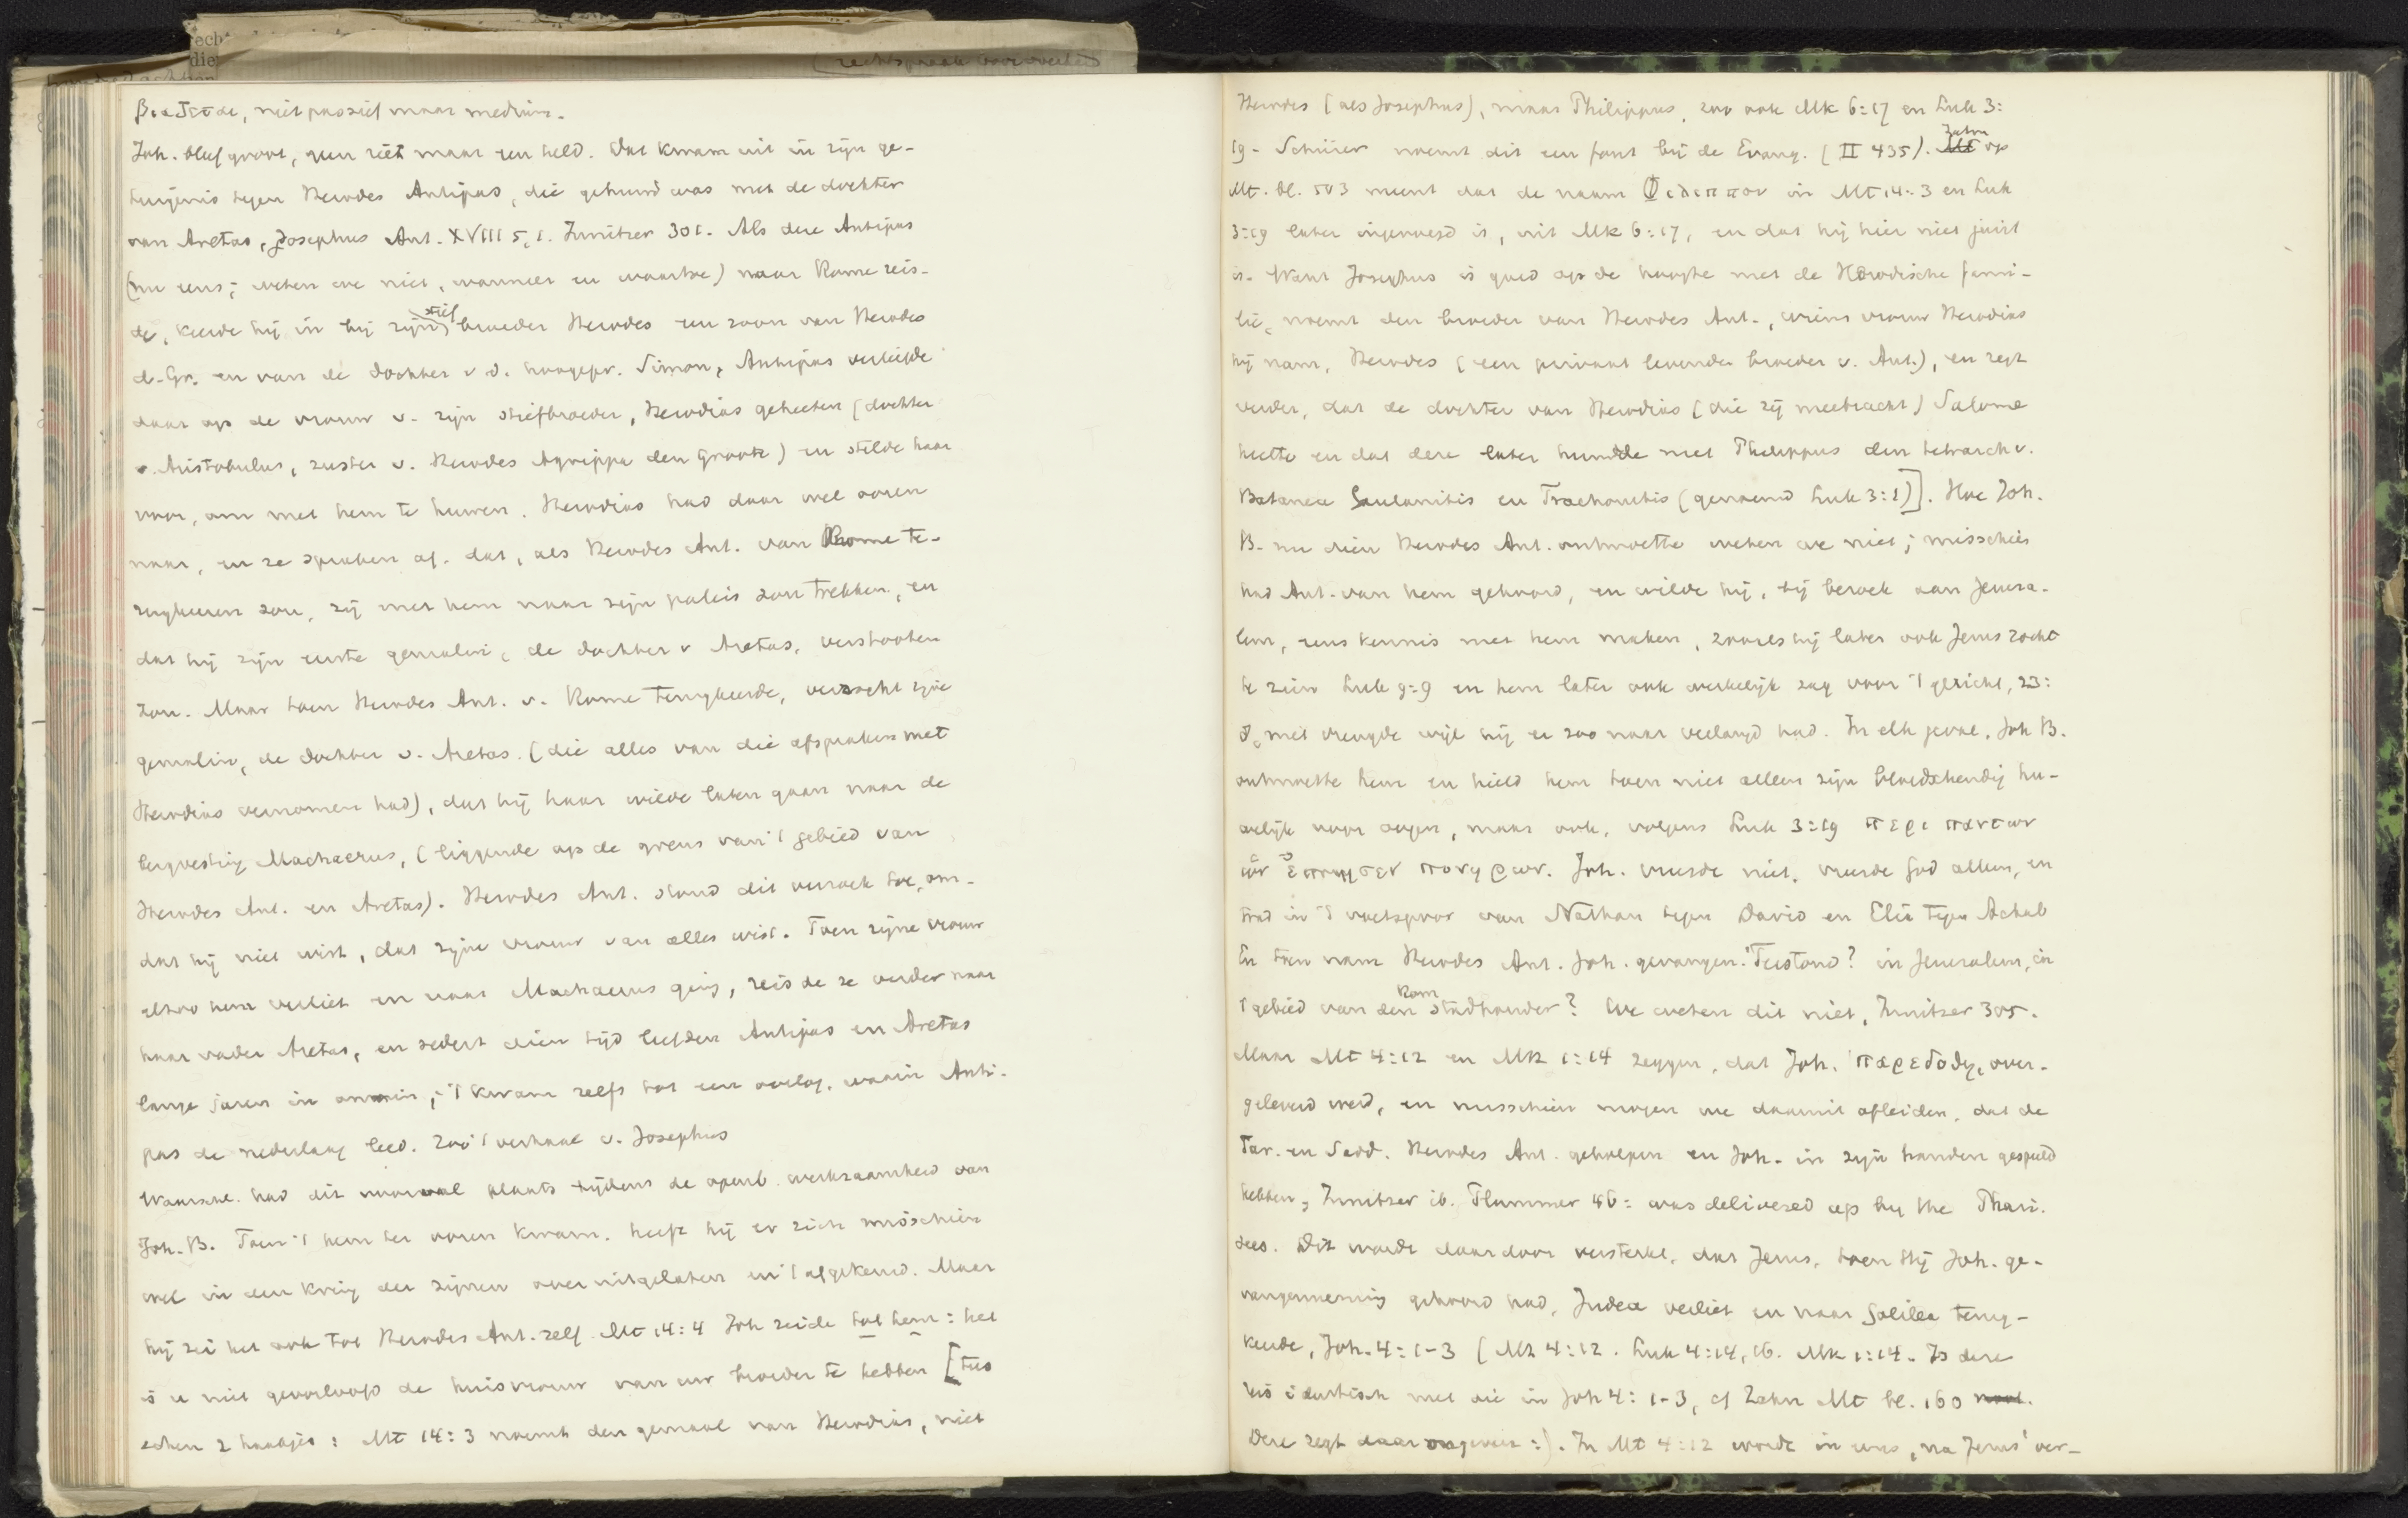 rechtspraak veroordeeld
βιαζεται, niet passief maar medium.
Joh. bleef groot, geen riet maar een held. Dat kwam uit in zijn ge-
tuigenis tegen Herodes Antipas, die gehuwd was met de dochter
van Aretas, Josephus Ant. XVIII 5, 1. Innitzer 301. Als deze Antipas
(nu eens; weten we niet, wanneer en waartoe) naar Rome reis-
de, keerde hij in bij zijn stiefbroeder Herodes een zoon van Herodes
d. Gr. en van de dochter v d. hoogepr. Simon, Antipas verliefde
daar op de vrouw v. zijn stiefbroeder, Herodias geheeten (dochter
v. Aristobulus, zuster v. Herodes Agrippa den Groote) en stelde haar
voor, om met hem te huwen. Herodias had daar wel ooren
naar, en ze spraken af. dat, als Herodes Ant. van Rome te-
rugkeeren zou, zij met hem naar zijn paleis zou trekken, en
dat hij zijn eerste gemalin, de dochter v Aretas, verstooten
zou. Maar toen Herodes Ant. v. Rome terugkeerde, verzocht zijne
gemalin, de dochter v. Aretas. (die alles van die afspraken met
Herodias vernomen had), dat hij haar wilde laten gaan naar de
bergvesting Machaerus, (liggende op de grens van 't gebied van
Herodes Ant. en Aretas). Herodes Ant. stond dit verzoek toe, om-
dat hij niet wist, dat zijne vrouw van alles wist. Toen zijne vrouw
alzoo hem verliet en naar Machaerus ging, reisde ze verder naar
haar vader Aretas, en sedert dien tijd leefden Antipas en Aretas
lange jaren in onmin; 't kwam zelfs tot een oorlog, waarin Anti-
pas de nederlaag leed. Zoo 't verhaal v. Josephus
Waarsch. had dit voorval plaats tijdens de openb. werkzaamheid van
Joh. B. Toen 't hem ter ooren kwam. heeft hij er zich misschien
wel in den kring der zijnen over uitgelaten en 't afgekeurd. Maar
hij zei het ook tot Herodes Ant. zelf. Mt 14:4 Joh zeide tot hem: het
is u niet geoorloofd de huisvrouw van uw broeder te hebben [tus
schen 2 haakjes: Mt 14:3 noemt den gemaal van Herodias, niet
Herodes (als Josephus), maar Philippus, zoo ook Mk 6:17 en Luk 3:
19. Schürer noemt dit een fout bij de Evang. (II 435). Zahn op
Mt. bl. 503 meent dat de naam Φιλιππου in Mt 14:3 en Luk
3:19 later ingevoegd is, uit Mk 6:17, en dat hij hier niet juist
is. Want Josephus is goed op de hoogte met de Herodische fami-
lie, noemt den broeder van Herodes Ant., wiens vrouw Herodias
hij nam, Herodes (een privaat levende broeder v. Ant.), en zegt
verder, dat de dochter van Herodias (die zij meebracht) Salome
heette en dat deze later huwde met Philippus den tetrarch v.
Batanea Gaulanitis en Trachonitis (genoemd Luk 3:1)]. Hoe Joh.
B. nu dien Herodes Ant. ontmoette weten we niet; misschien
had Ant. van hem gehoord, en wilde hij, bij bezoek aan Jeruza-
lem, eens kennis met hem maken, zooals hij later ook Jezus zocht
te zien Luk 9:9 en hem later ook werkelijk zag voor 't gericht, 23:
8, met vreugde wijl hij er zoo naar verlangd had. In elk geval, Joh B.
ontmoette hem en hield hem toen niet alleen zijn bloedschendig hu-
welijk voor oogen, maar ook, volgens Luk 3:19 περι παντων
ὡν ἐποιησεν πονηρων. Joh. vreesde niet. vreesde God alleen, en
trad in 't voetspoor van Nathan tegen David en Elia tegen Achab
En toen nam Herodes Ant. Joh. gevangen. Terstond? in Jeruzalem, in
't gebied van den Rom stadhouder? We weten dit niet, Innitzer 305.
Maar Mt 4:12 en Mk 1:14 zeggen, dat Joh. παρεδοθη, over-
geleverd werd, en misschien mogen we daaruit afleiden, dat de
Far. en Sadd. Herodes Ant. geholpen en Joh. in zijn handen gespeeld
hebben, Innitzer ib. Plummer 46: was delivered up by the Phari-
sees. Dit wordt daardoor versterkt, dat Jezus, toen Hij Joh. ge-
vangenneming gehoord had, Judea verliet en naar Galilea terug-
keerde, Joh. 4:1-3 (Mt 4:12. Luk 4:14, 16. Mk 1:14. Is deze
reis identisch met die in Joh 4:1-3, cf Zahn Mt bl. 160
Deze zegt daar ongeveer:). In Mt 4:12 wordt in ons, na Jezus' ver-